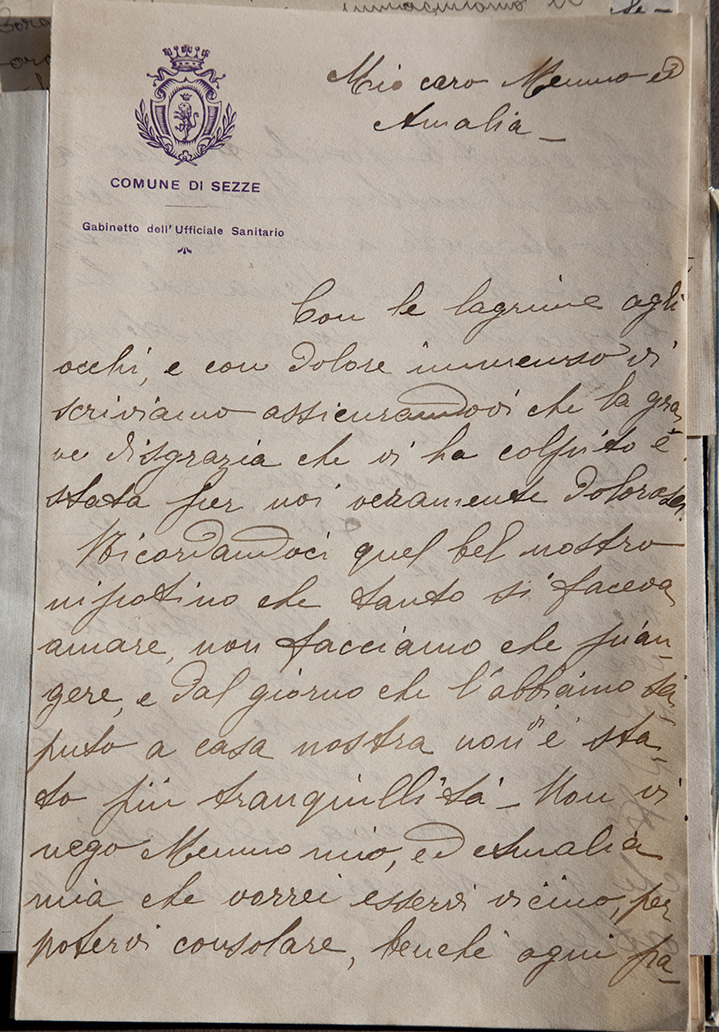 Mio caro Memmo ed
Amalia _
COMUNE DI SEZZE
Gabinetto dell'Ufficiale Sanitario
Con le lagrime agli
occhi, e con dolore immenso vi
scriviamo assicurandovi che la gra
ve disgrazia che vi ha colpito è
stata per noi veramente dolorosa.
Ricordandoci quel bel nostro
nipotino che tanto si faceva
amare, non facciamo che pian-
gere, e dal giorno che l'abbiamo sa
puto a casa nostra non vi è sta-
to più tranquillità _ Non vi
nego Memmo mio, ed Amalia
mia che vorrei esservi vicino, per
potervi consolare, benchè ogni pa-